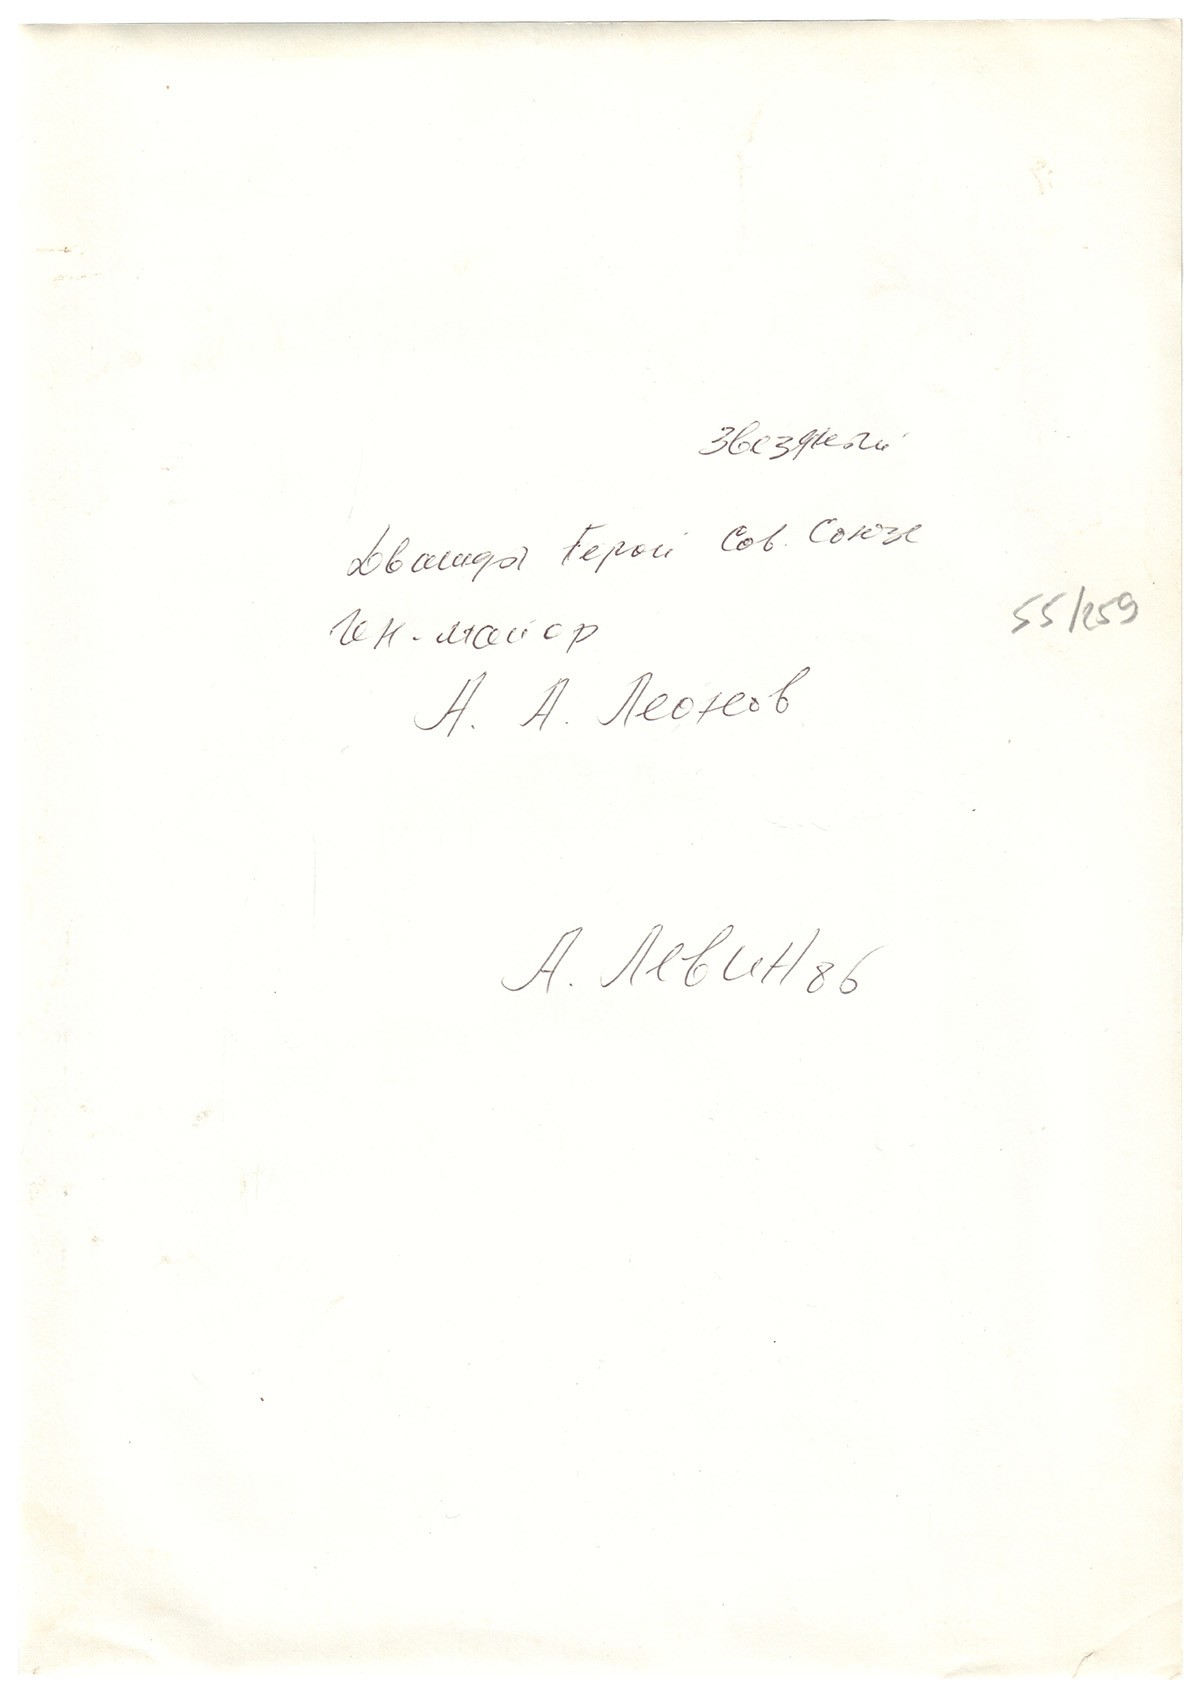 Звездный
Дважды Герой Сов. Союза
Ген-майор
55/259
А. А. Леонов
А. Левин 86